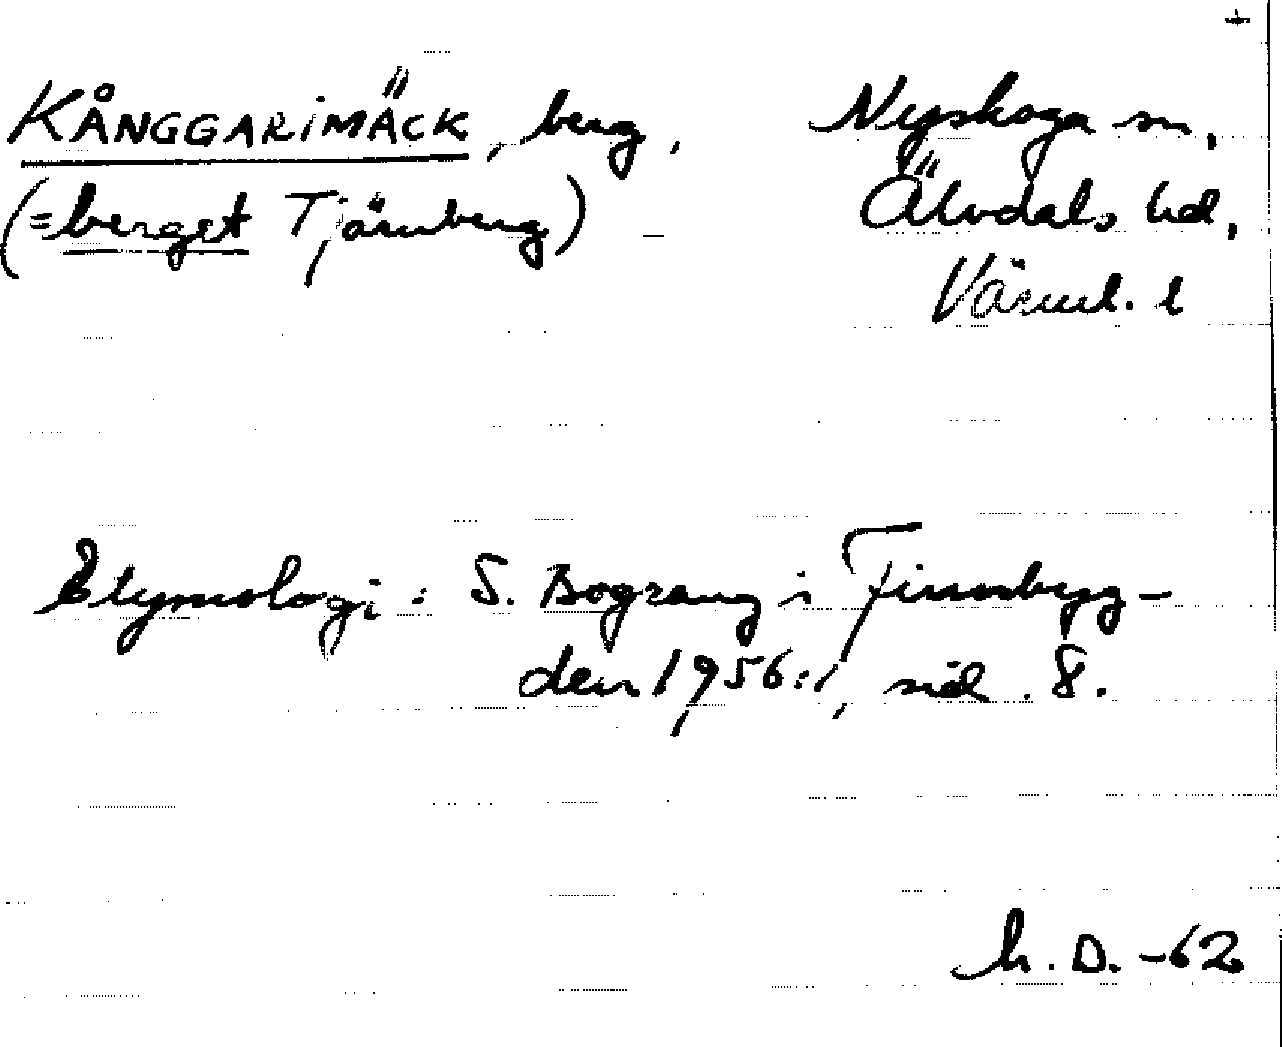 +
KÅNGGARIMÄCK, berg, Nyskoga sn,
(=berget Tjärnberg) — Älvdals hd,
Värml. l
Etymologi: S. Bograng i Finnbygg-
den 1956:1, sid. 8.
h. D. -62